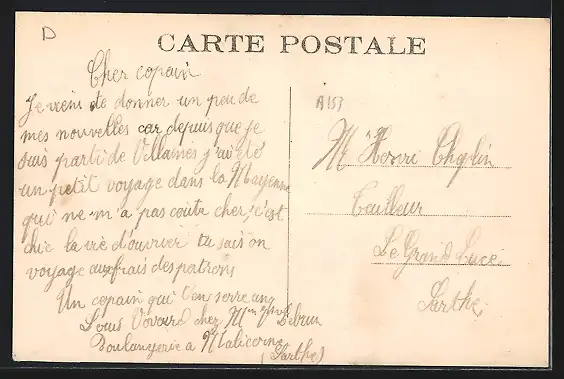 D
CARTE POSTALE
Cher copain
Je viens te donner un peu de
mes nouvelles car depuis que je
suis parti de Villaines j'ai été
un petit voyage dans la Mayenne
qui ne m'a pas coûté cher, c'est
chic la vie d'ouvrier tu sais on
voyage aux frais des patrons
Un copain qui t'en serre une
Louis chez Mme Lebrun
Boulangerie a Malicorne
(Sarthe)
A153
Mr Henri Choplin
Tailleur
Le Grand Luce
Sarthe